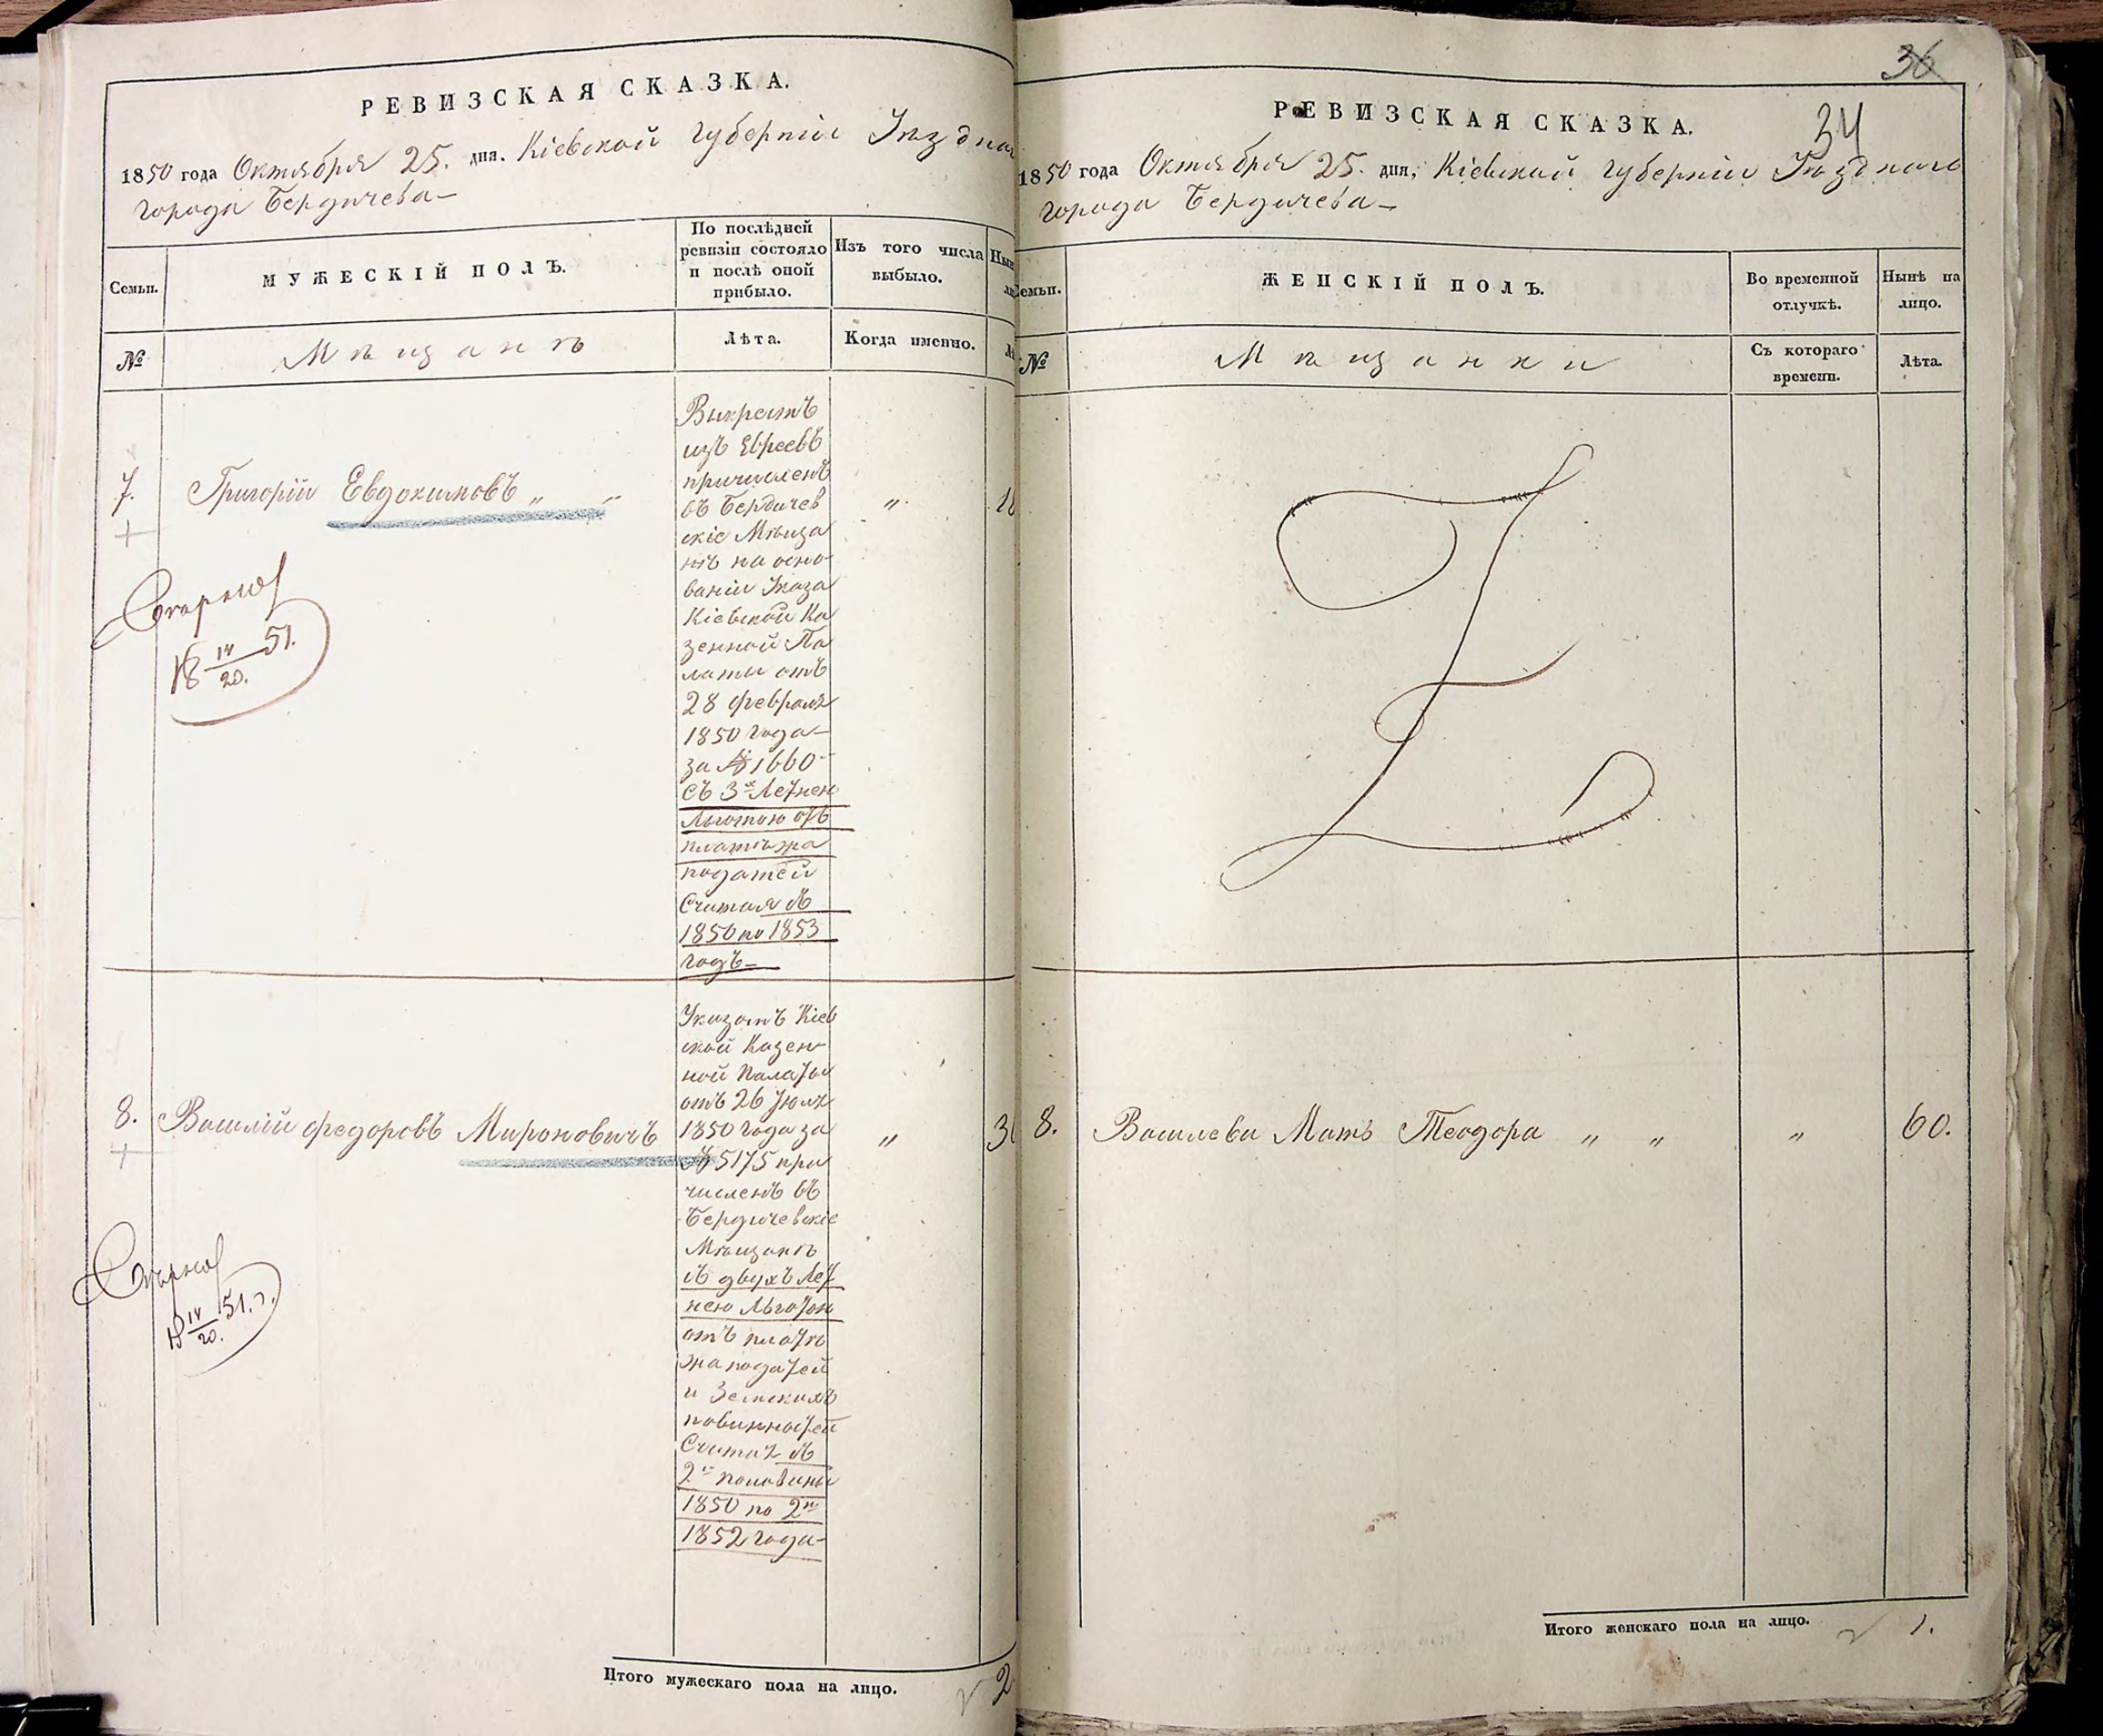 РЕВИЗСКАЯ СКАЗКА.
1850 года Октября 25. дня. Кіевской Губерніи Уѣзднаго
города Бердичева—
Семьи.
МУЖЕСКІЙ ПОЛЪ.
По послѣдней
ревизіи состояло
и послѣ оной
прибыло.
Изъ того числа
выбыло.
№
Мѣщанъ
Лѣта.
Когда именно.
7.
Григорій Евдокимовъ „ „
Выкрестъ
изъ Евреевъ
причисленъ
въ Бердичев
скіе Мѣща
нѣ на осно-
ваніи Указа
Кіевской Ка
зенной Па
латы отъ
28 февраля
1850 года—
за № 1660
съ 3х Летнею
Льготою отъ
платѣжа
податей
Считая съ
1850 по 1853
годъ—
„
18 51.
20.
8.
Василій Федоровъ Мироновичъ
Указомъ Кіев
ской Казен-
ной Палаты
отъ 26 Іюля
1850 года за
№ 5175 при
численъ въ
Бердичевскіе
Мѣщанѣ
съ двухъ Лет
нею Льготою
отъ платѣ
жа податей
и Земскихъ
повинностей
Считая съ
2й половины
1850 по 2ю
1852 года—
„
18 51. г.
20.
Итого мужескаго пола на лицо.
2
36
34
РЕВИЗСКАЯ СКАЗКА.
1850 года Октября 25. дня, Кіевской Губерніи Уѣзднаго
города Бердичева—
Семьи.
ЖЕНСКІЙ ПОЛЪ.
Во временной
отлучкѣ.
Нынѣ на
лицо.
№
Мѣщанки
Съ котораго
времени.
Лѣта.
8.
Васильева Мать Теодора „ „
„
60.
Итого женскаго пола на лицо.
1.